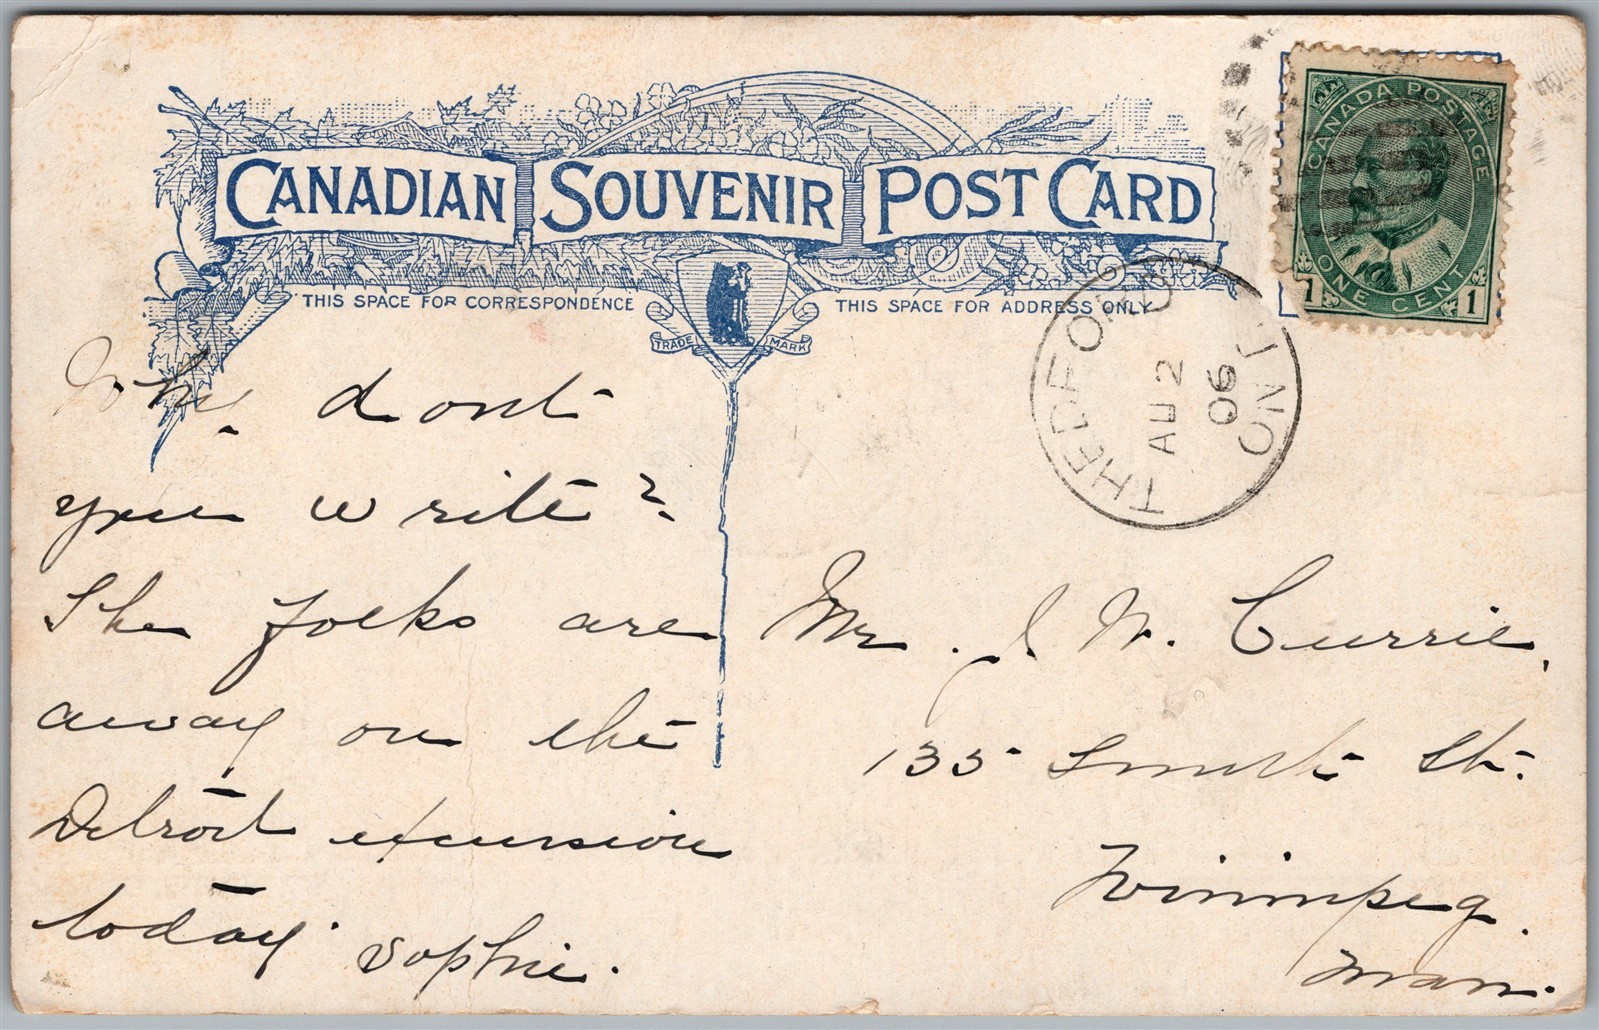 CANADIAN SOUVENIR POST CARD
THIS SPACE FOR CORRESPONDENCE
THIS SPACE FOR ADDRESS ONLY
TRADE MARK
CANADA POSTAGE
ONE CENT
1 1
THEDFORD
AU 2
06
ONT
Why dont
you write?
The folks are
away on the
Detroit excursion
today. Sophie.
Mr. J. W. Currie,
135 Smith St.
Winnipeg.
Man.